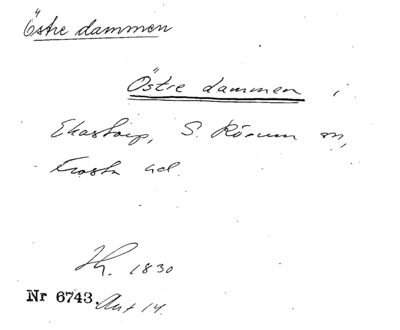 Östre dammen
Östre dammen i
Ekastorp, S. Rörum sn,
Frosta hd.
Th. 1830
Nr 6743. Akt 14.